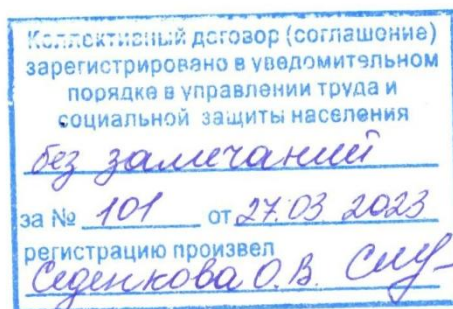 Коллективный договор (соглашение)
зарегистрировано в уведомительном
порядке в управлении труда и
социальной защиты населения
без замечаний
за № 101 от 27.03 2023
регистрацию произвел
Седенкова О.В.